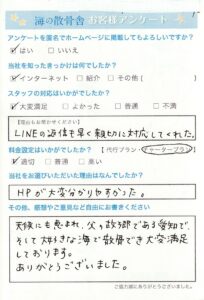 海の散骨舎 お客様アンケート
アンケートを匿名でホームページに掲載してもよろしいですか?
☑はい □いいえ
当社を知ったきっかけは何でしたか?
☑インターネット □紹介 □その他( )
スタッフの対応はいかがでしたか?
☑大変満足 □よかった □普通 □不満
【理由もお聞かせください】
LINEの返信も早く親切に対応してくれた。
料金設定はいかがでしたか? 【代行プラン・チャータープラン】
☑適切 □普通 □高い
当社をお選びいただいた理由はなんでしたか?
HPが大変分かりやすかった。
その他、感想やご意見など自由にお書きください
天候にも恵まれ、父の故郷である愛知で、
そして大好きな海で散骨でき大変満足
しております。
ありがとうございました。
ご協力誠にありがとうございました。